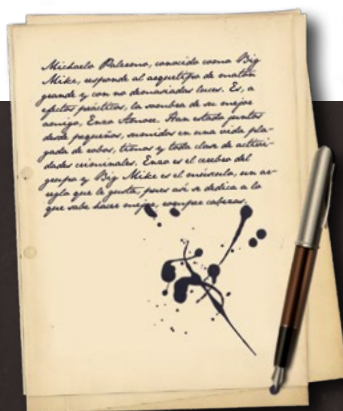 Michaelo Palermo, conocido como Big
Mike, responde al arquetipo de matón
grande y con no demasiadas luces. Es, a
efectos prácticos, la sombra de su mejor
amigo, Enzo Amore. Han estado juntos
desde pequeños, sumidos en una vida pla-
gada de robos, timos y toda clase de activi-
dades criminales. Enzo es el cerebro del
grupo y Big Mike es el músculo, un ar-
reglo que le gusta, pues así se dedica a lo
que sabe hacer mejor, romper cabezas.